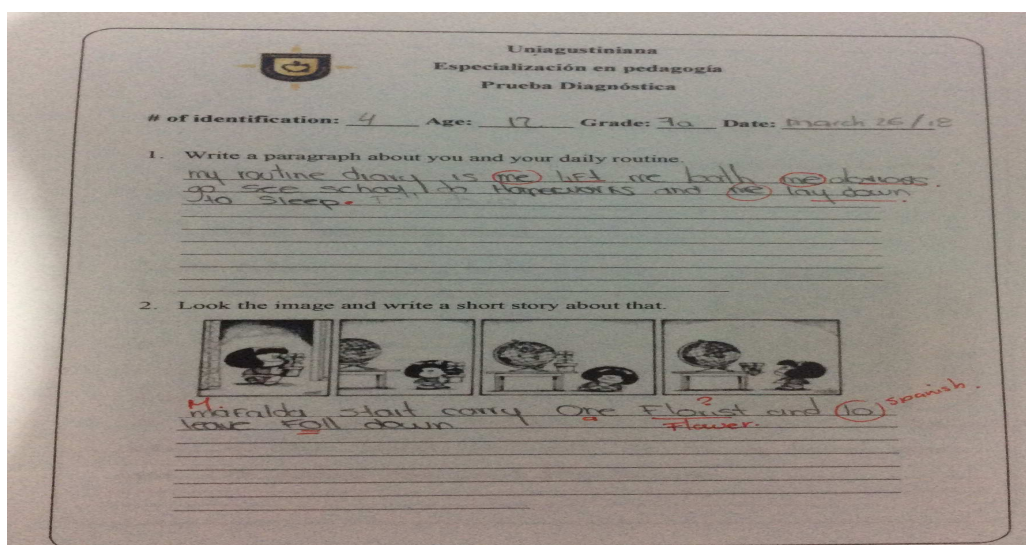 Uniagustiniana
Especialización en pedagogía
Prueba Diagnóstica
# of identification: 4 Age: 12 Grade: 7a Date: march 26/18
1. Write a paragraph about you and your daily routine.
my routine diary is me lift me bath me
go see school do Homeworks and me lay down
to sleep.
2. Look the image and write a short story about that.
M
?
Spanish.
mafalda start carry One Florist and lo
a Flower.
leave Foll down